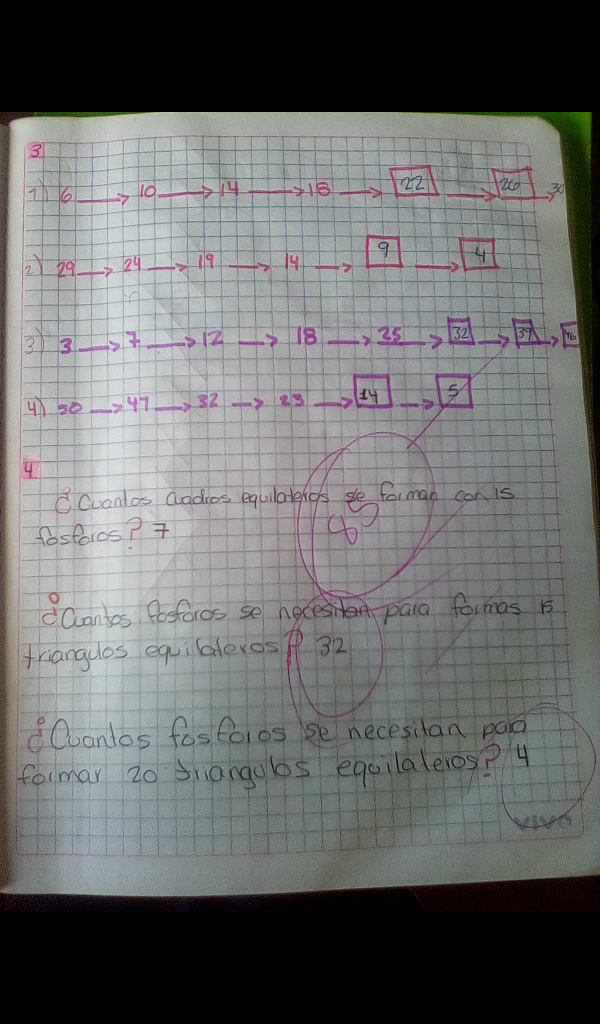 3
1) 6 → 10 → 14 → 18 → 22 → 26 → 30
2) 29 → 24 → 19 → 14 → 9 → 4
3) 3 → 7 → 12 → 18 → 25 → 32 → 39 →
4) 50 → 47 → 32 → 23 → 14 → 5
4
¿Cuantos cuadros equilateros se forman con 15
fosforos? 7
¿Cuantos fosforos se necesitan para formas 15
triangulos equilateros? 32
¿Cuantos fosforos se necesitan para
formar 20 triangulos equilateros? 4
vivo